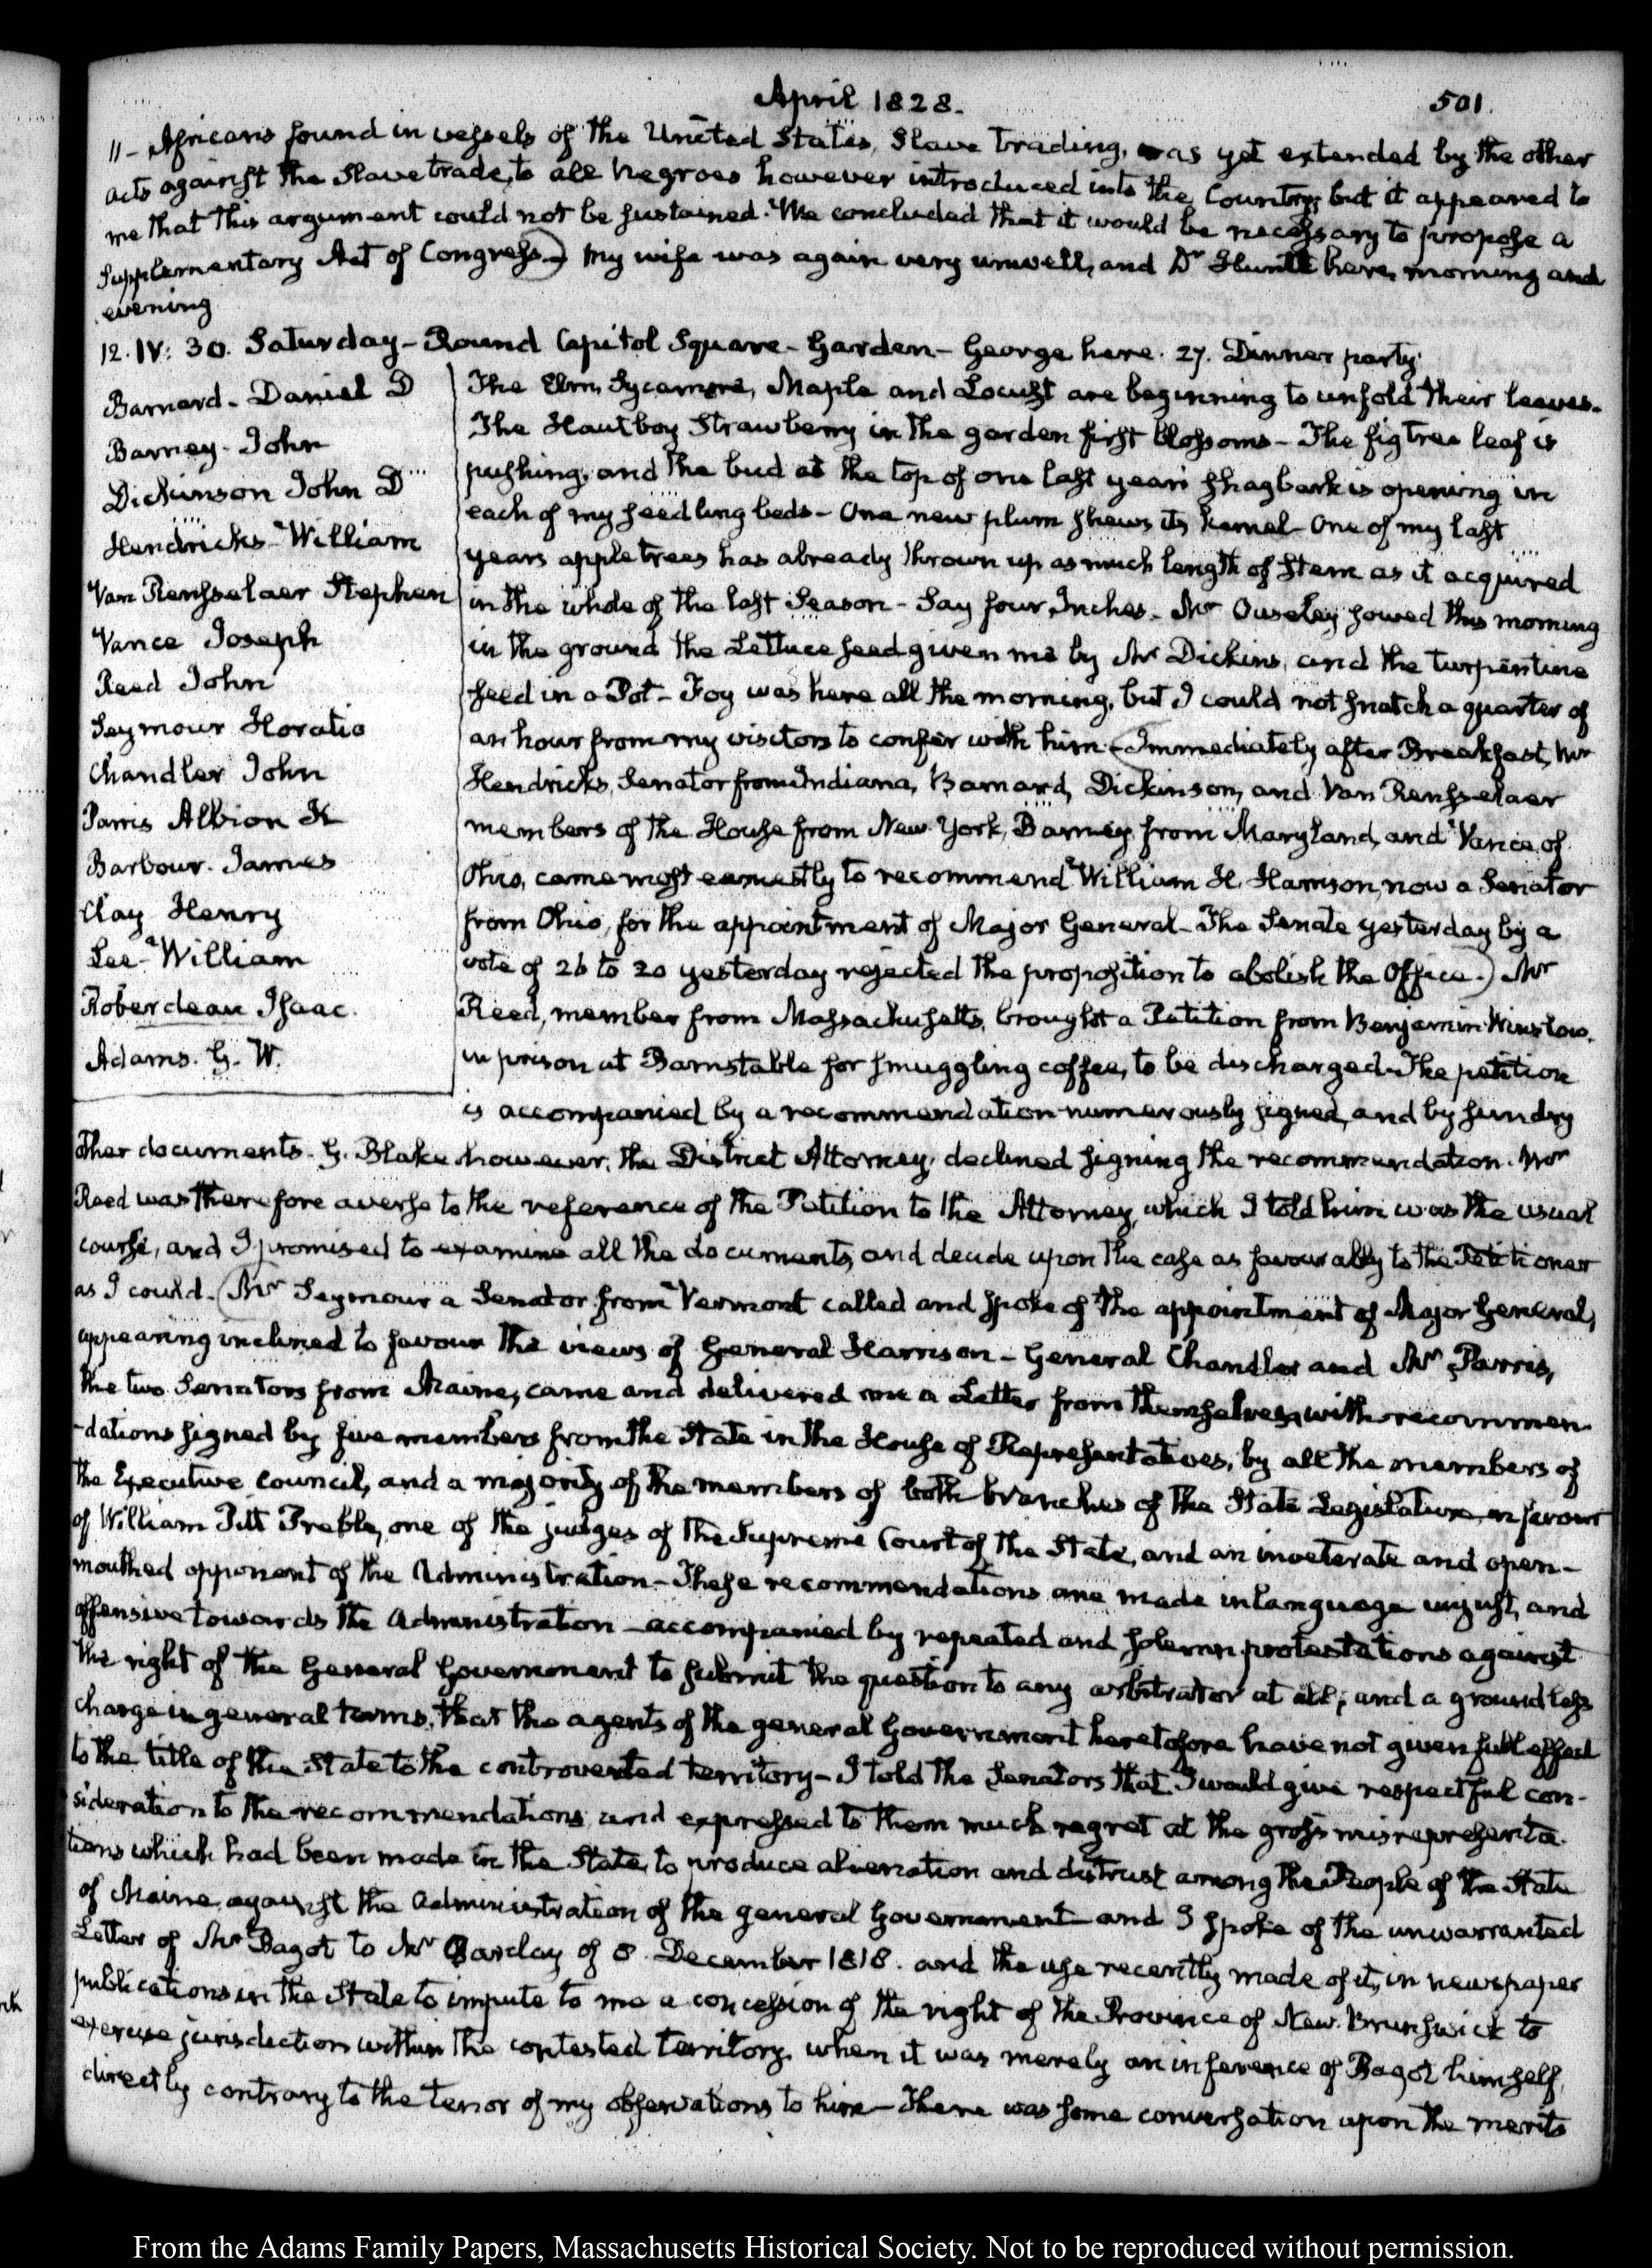 April 1828.
501.
11 - Africans found in vessels of the United States, Slave trading, was yet extended by the other
acts against the Slave trade, to all negroes however introduced into the Country; but it appeared to
me that this argument could not be sustained. We concluded that it would be necessary to propose a
Supplementary Act of Congress.) My wife was again very unwell, and Dr Huntt here, morning and
evening
12. IV: 30. Saturday - Round Capitol Square - Garden - George here. 27. Dinner party.
Barnard - Daniel D
Barney - John
Dickinson John D
Hendricks - William
Van Rensselaer Stephen
Vance Joseph
Reed John
Seymour Horatio
Chandler John
Parris Albion K
Barbour. James
Clay Henry
Lee - William
Roberdeau Isaac.
Adams. G. W.
The Elm, Sycamore, Maple and Locust are beginning to unfold their leaves.
The Hautboy Strawberry in the garden first blossoms - The fig tree leaf is
pushing, and the bud at the top of one last year's shagbark is opening in
each of my seedling beds - One new plum shews its kernel - One of my last
years apple trees has already thrown up as much length of stem as it acquired
in the whole of the last Season - Say four Inches - Mr Ouseley sowed this morning
in the ground the Lettuce seed given me by Mr Dickins, and the turpentine
seed in a Pot - Foy was here all the morning, but I could not snatch a quarter of
an hour from my visitors to confer with him - (Immediately after Breakfast, Mr
Hendricks, Senator from Indiana, Barnard, Dickinson, and Van Rensselaer
members of the House from New York, Barney from Maryland, and Vance of
Ohio, came most earnestly to recommend William H. Harrison, now a Senator
from Ohio, for the appointment of Major General - The Senate yesterday by a
vote of 26 to 20 yesterday rejected the proposition to abolish the Office.) Mr
Reed, member from Massachusetts, brought a Petition from Benjamin Winslow.
in prison at Barnstable for smuggling coffee, to be discharged. The petition
is accompanied by a recommendation numerously signed, and by sundry
other documents. G. Blake however, the District Attorney, declined signing the recommendation. Mr
Reed was therefore averse to the reference of the Petition to the Attorney, which I told him was the usual
course, and I promised to examine all the documents, and decide upon the case as favourably to the Petitioner
as I could. (Mr Seymour a Senator from Vermont called and spoke of the appointment of Major General,
appearing inclined to favour the views of General Harrison - General Chandler and Mr Parris,
the two Senators from Maine, came and delivered me a Letter from themselves, with recommen-
-dations signed by five members from the State in the House of Representatives, by all the members of
the Executive Council, and a majority of the members of both branches of the State Legislature, in favour
of William Pitt Preble, one of the judges of the Supreme Court of the State, and an inveterate and open-
mouthed opponent of the Administration - These recommendations are made in language unjust, and
offensive towards the Administration - accompanied by repeated and solemn protestations against
the right of the General Government to submit the question to any arbitrator at all; and a groundless
charge in general terms, that the agents of the general Government heretofore have not given full effect
to the title of the State to the controverted territory - I told the Senators that I would give respectful con-
sideration to the recommendations, and expressed to them much regret at the gross misrepresenta-
tions which had been made in the State, to produce alienation and distrust among the People of the State
of Maine, against the Administration of the general Government - and I spoke of the unwarranted
Letter of Mr Bagot to Mr Barclay of 8. December 1818. and the use recently made of it, in newspaper
publications in the State to impute to me a concession of the right of the Province of New-Brunswick to
exercise jurisdiction within the contested territory, when it was merely an inference of Bagot himself,
directly contrary to the tenor of my observations to him - There was some conversation upon the merits
From the Adams Family Papers, Massachusetts Historical Society. Not to be reproduced without permission.